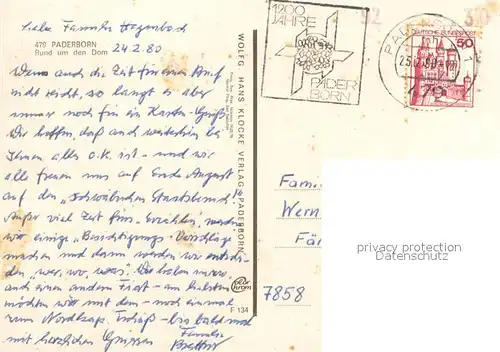 Liebe Familie Hagenbach
479 PADERBORN
Rund um den Dom
24.2.80
Wenn auch die Zeit für einen Brief
nicht reicht, so langt es aber
immer noch für ein Karten-Grüß.
Wir hoffen, daß auch weiterhin bei
Ihnen alles o.k. ist - und wir
alle freuen uns auf Ende August
auf den "schwäbischen Staatsbesuch"!
Außer viel Zeit fürs "Erzählen" werden
wir einige "Besichtigungs-Vorschläge
machen und dann werden wir entschei-
den "wer, wo, was". Die holen
auch einen andern - am liebsten
möchten wir mit dem - noch einmal
zum Nordkap. Tschüß - bis bald und
mit herzlichen Grüssen
Familie
WOLFG. HANS KLOCKE VERLAG · PADERBORN
F 134
1200
JAHRE
PADER
BORN
DEUTSCHE BUNDESPOST
50
479
Fami
Wern
Fä
7858
privacy protection
privacy protection